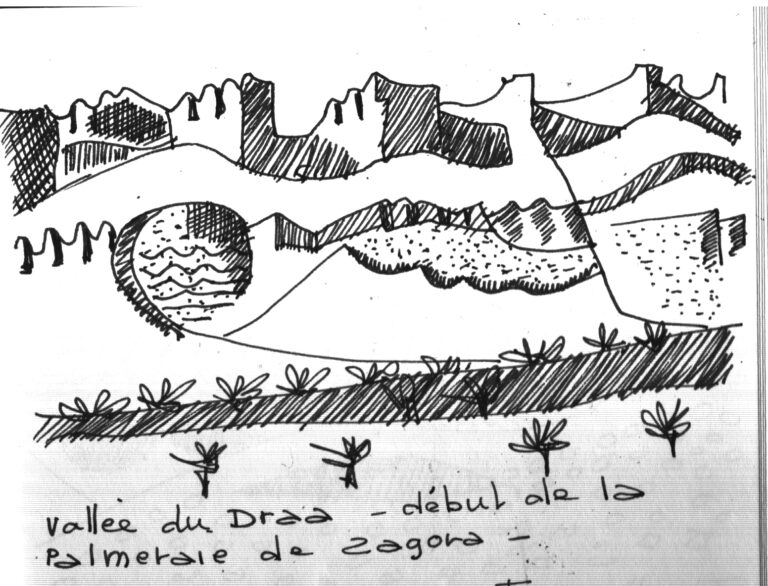 vallée du Draa - début de la
Palmeraie de Zagora -